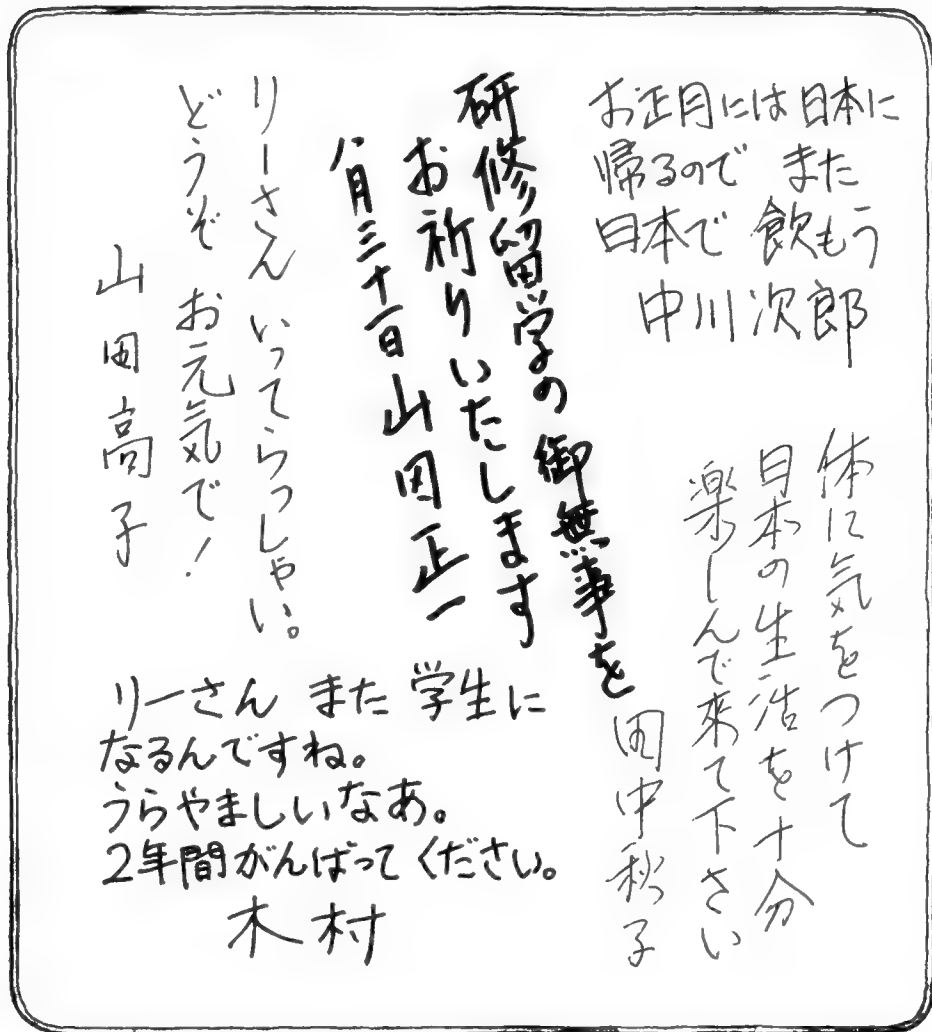 お正月には日本に
帰るので また
日本で 飲もう
中川次郎
体に気をつけて
日本の生活を十分
楽しんで来て下さい
田中秋子
研修留学の御無事を
お祈りいたします
八月三十一日 山田正一
リーさん いってらっしゃい。
どうぞ お元気で!
山田高子
リーさん また 学生に
なるんですね。
うらやましいなあ。
2年間がんばってください。
木村